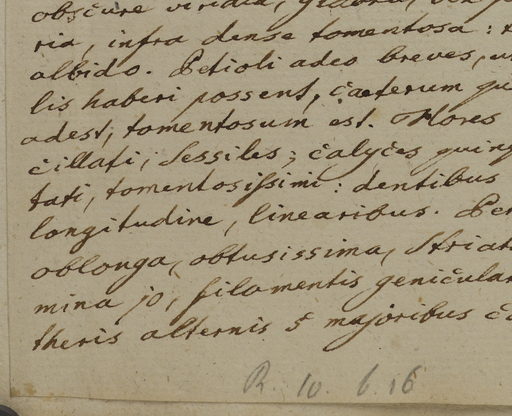 obscure viridia, glabra,
ria, infra dense tomentosa:
albido. Petioli adeo breves, u
lis haberi possent, cæterum qu
adest, tomentosum est. Flores
cillati, sessiles; calyces quinq
tati, tomentosissimi: dentibus
longitudine, linearibus. Pet
oblonga, obtusissima, striat
mina 10, filamentis genicular
theris alternis 5 majoribus c
R. 10. 6. 16